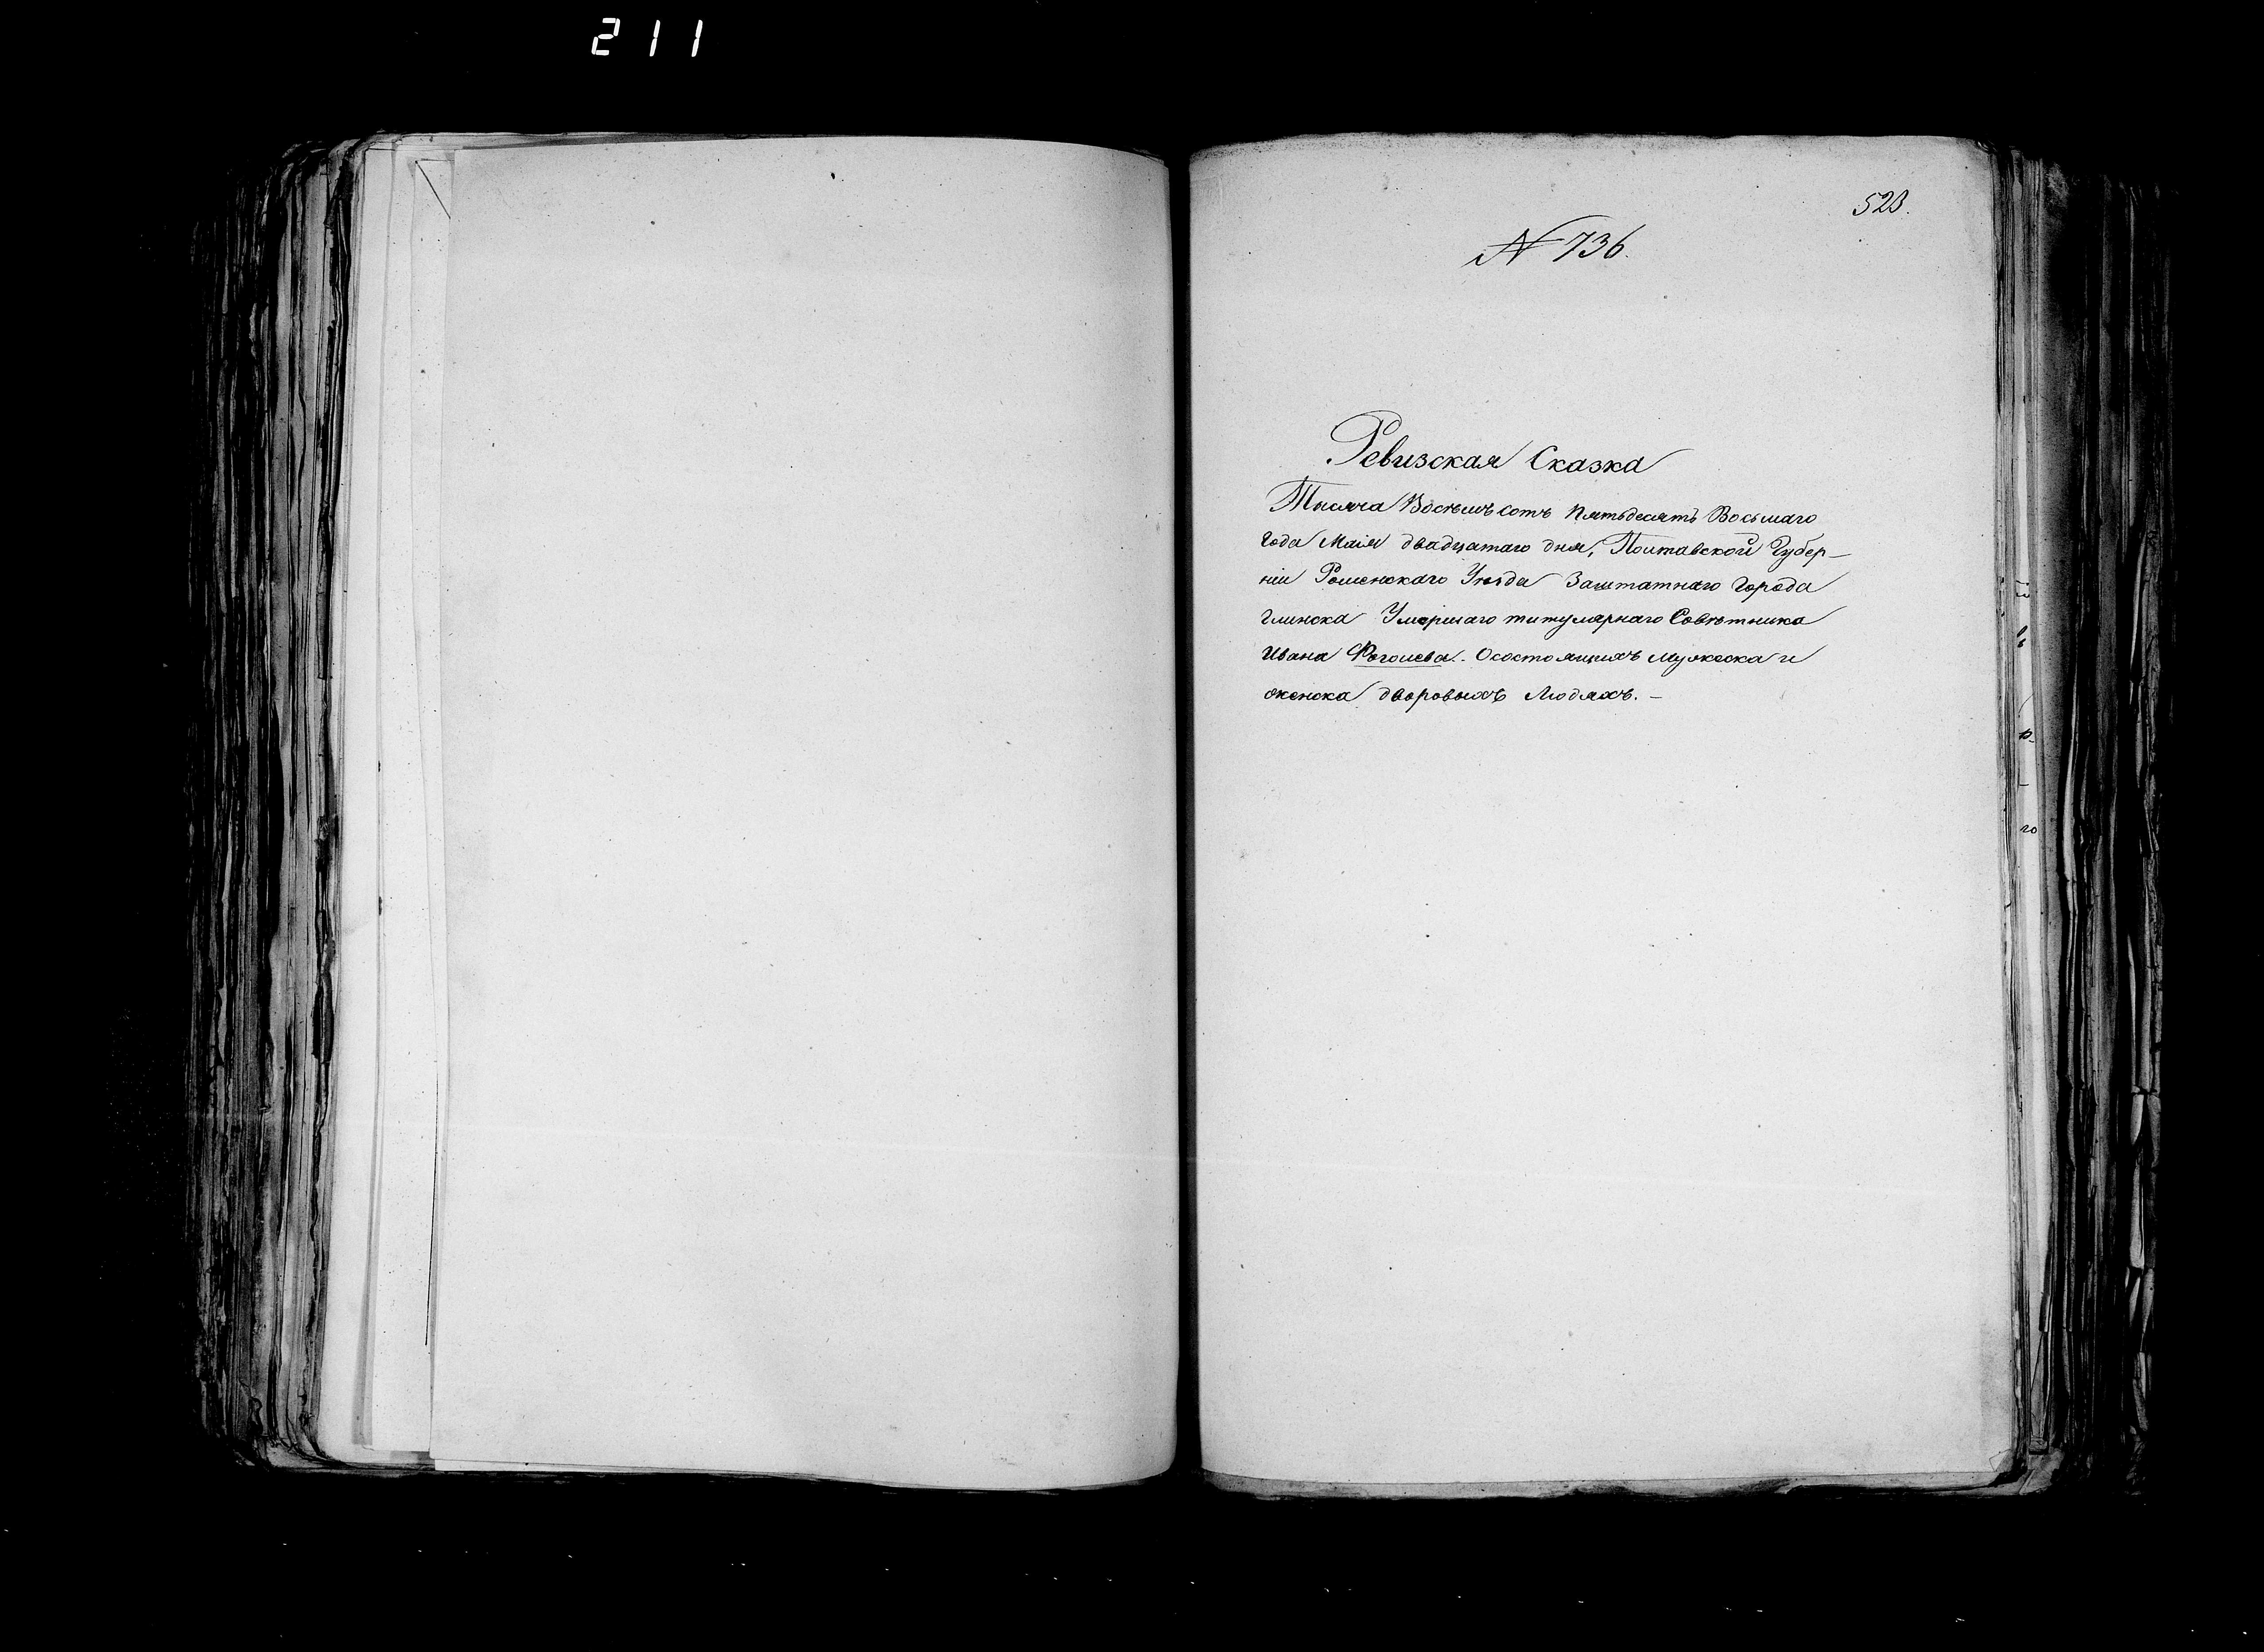 211
523.
N 736.
Ревизская Сказка
Тысяча Восемь сотъ пятьдесятъ Восьмаго
года Маія двадцатаго дня, Полтавской Губер-
ніи Роменскаго Уѣзда Заштатнаго города
Глинска Умершаго титулярнаго Совѣтника
Ивана О состоящихъ мужеска и
женска дворовыхъ Людяхъ. -
го